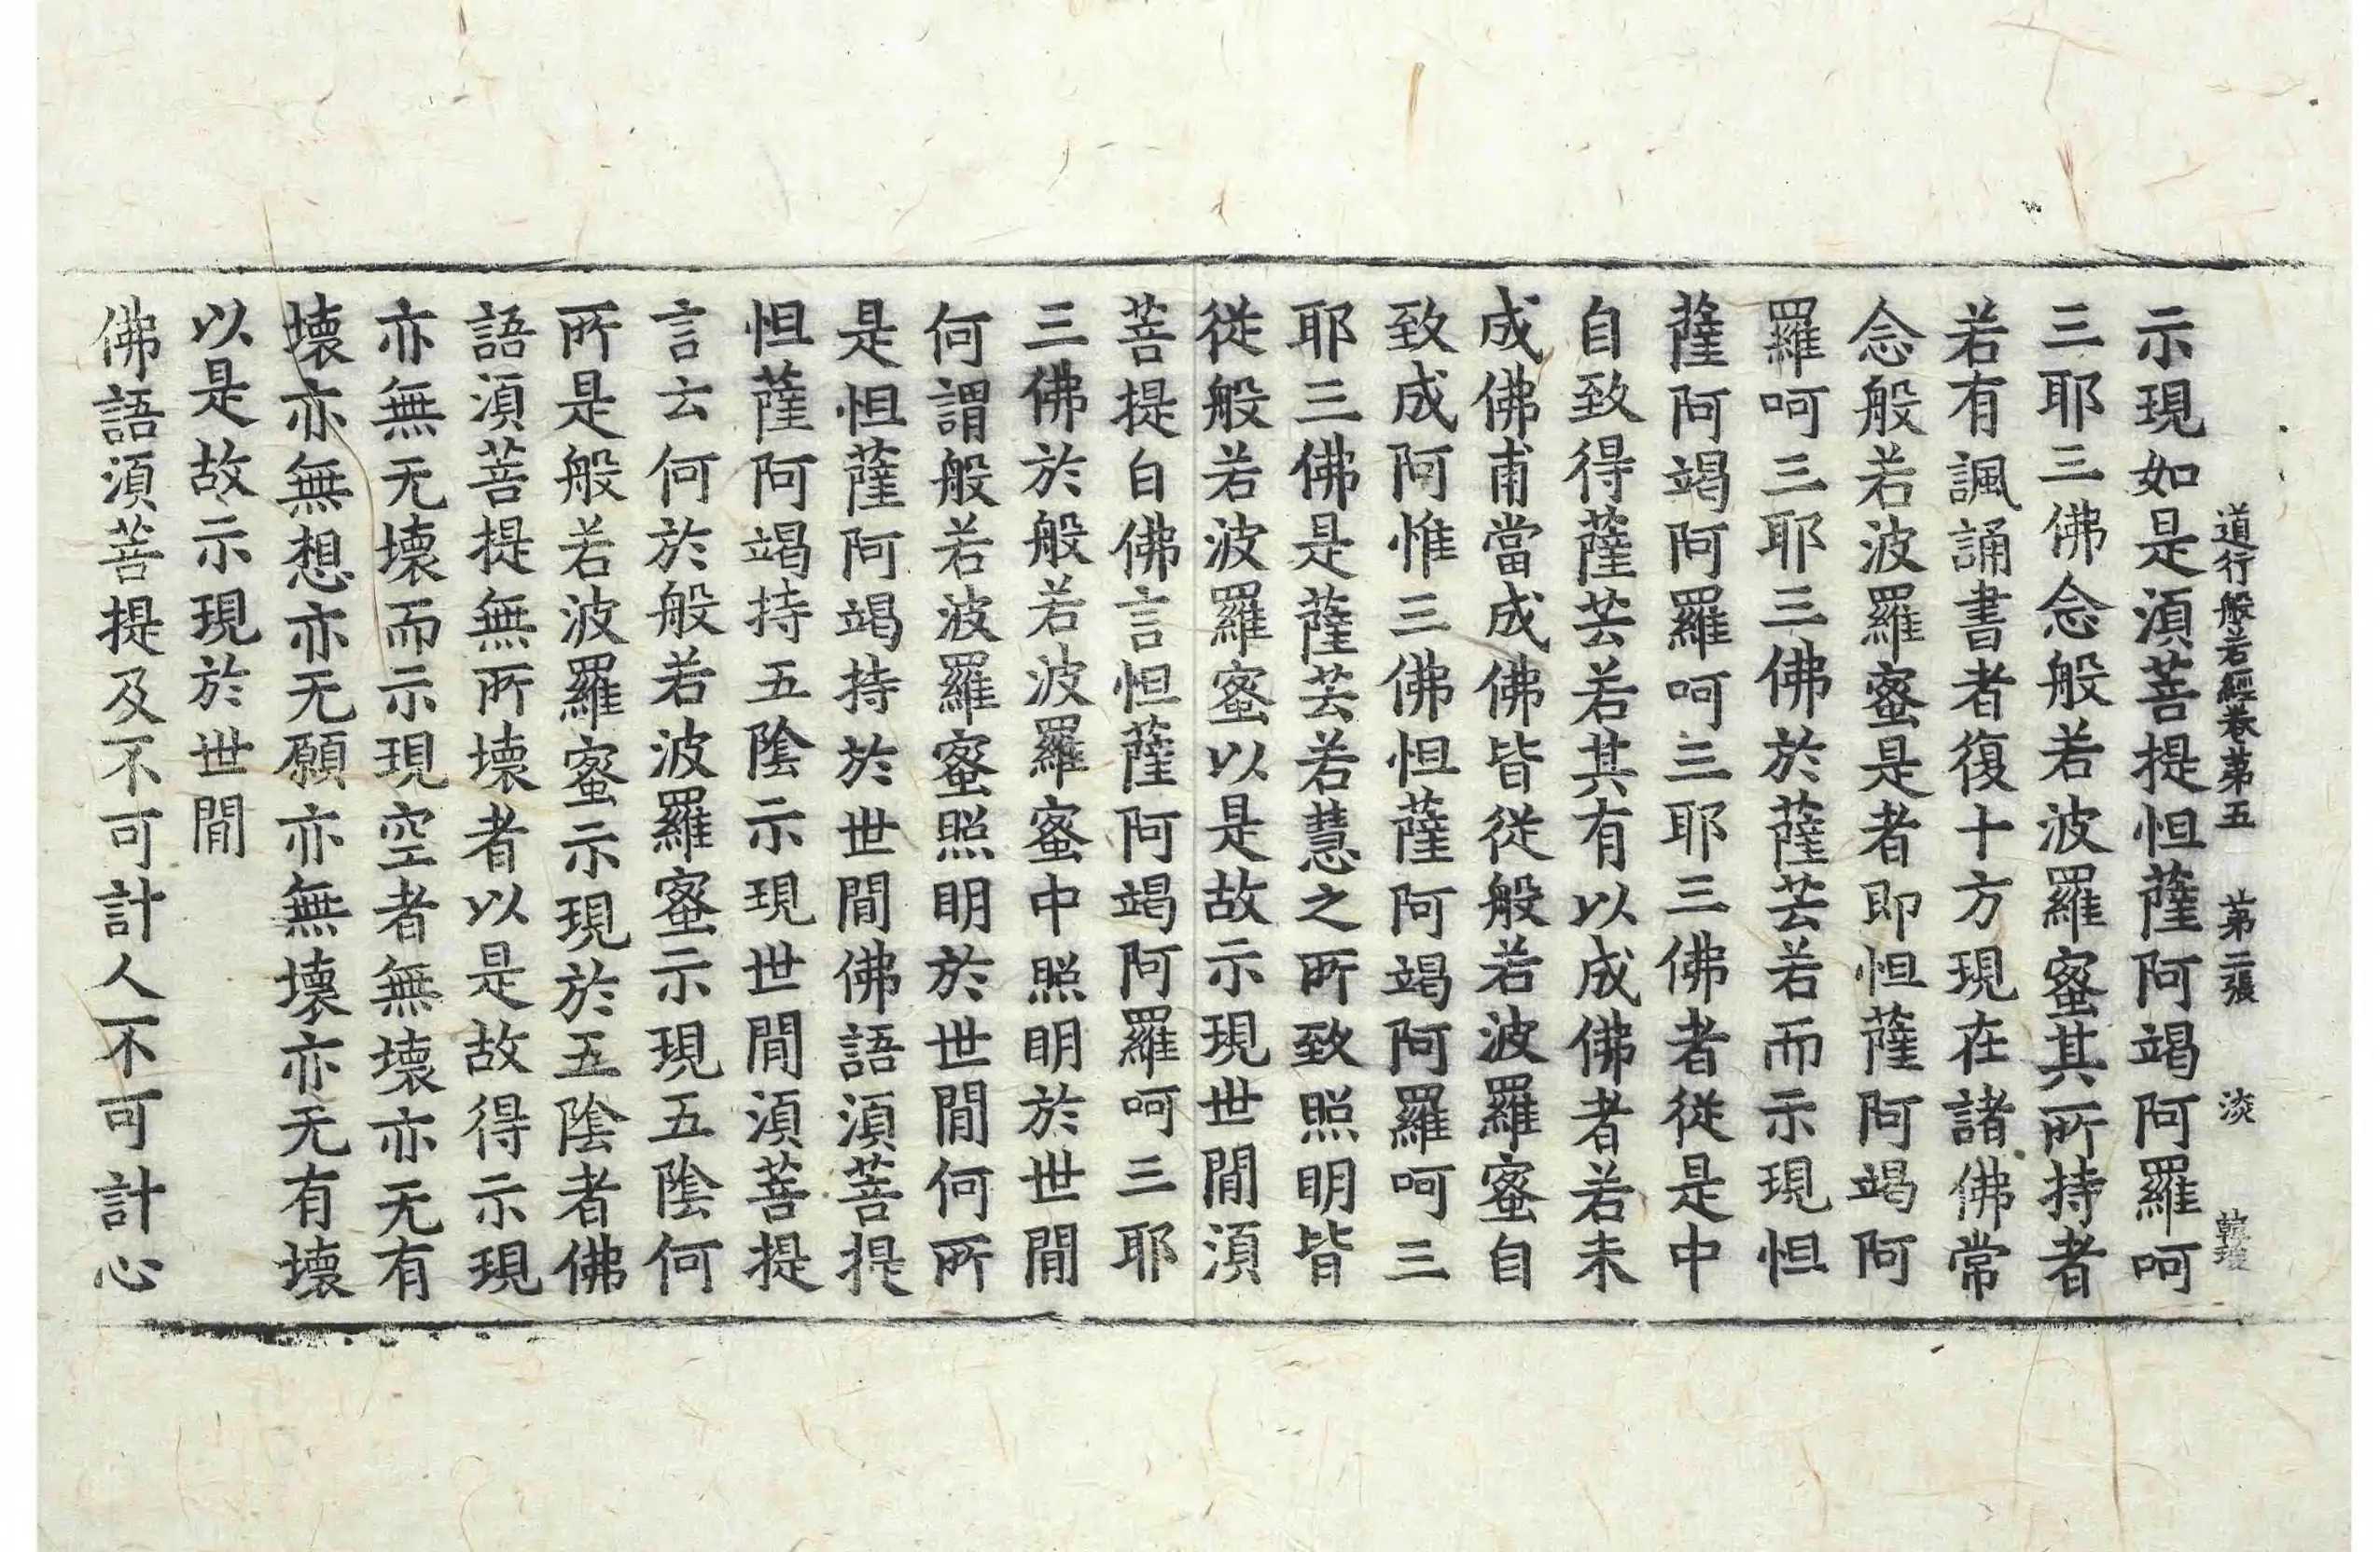 道行般若經卷第五 第二張 淡
示現如是湏菩提怛薩阿竭阿羅呵
三耶三佛念般若波羅蜜其所持者
若有諷誦書者復十方現在諸佛常
念般若波羅蜜是者即怛薩阿竭阿
羅呵三耶三佛於薩芸若而示現怛
薩阿竭阿羅呵三耶三佛者從是中
自致得薩芸若其有以成佛者若未
成佛甫當成佛皆從般若波羅蜜自
致成阿惟三佛怛薩阿竭阿羅呵三
耶三佛是薩芸若慧之所致照明皆
從般若波羅蜜以是故示現世間湏
菩提白佛言怛薩阿竭阿羅呵三耶
三佛於般若波羅蜜中照明於世間
何謂般若波羅蜜照明於世間何所
是怛薩阿竭持於世間佛語湏菩提
怛薩阿竭持五陰示現世間湏菩提
言云何於般若波羅蜜示現五陰何
所是般若波羅蜜示現於五陰者佛
語湏菩提無所壞者以是故得示現
亦無无壞而示現空者無壞亦无有
壞亦無想亦无願亦無壞亦无有壞
以是故示現於世間
佛語湏菩提及不可計人不可計心